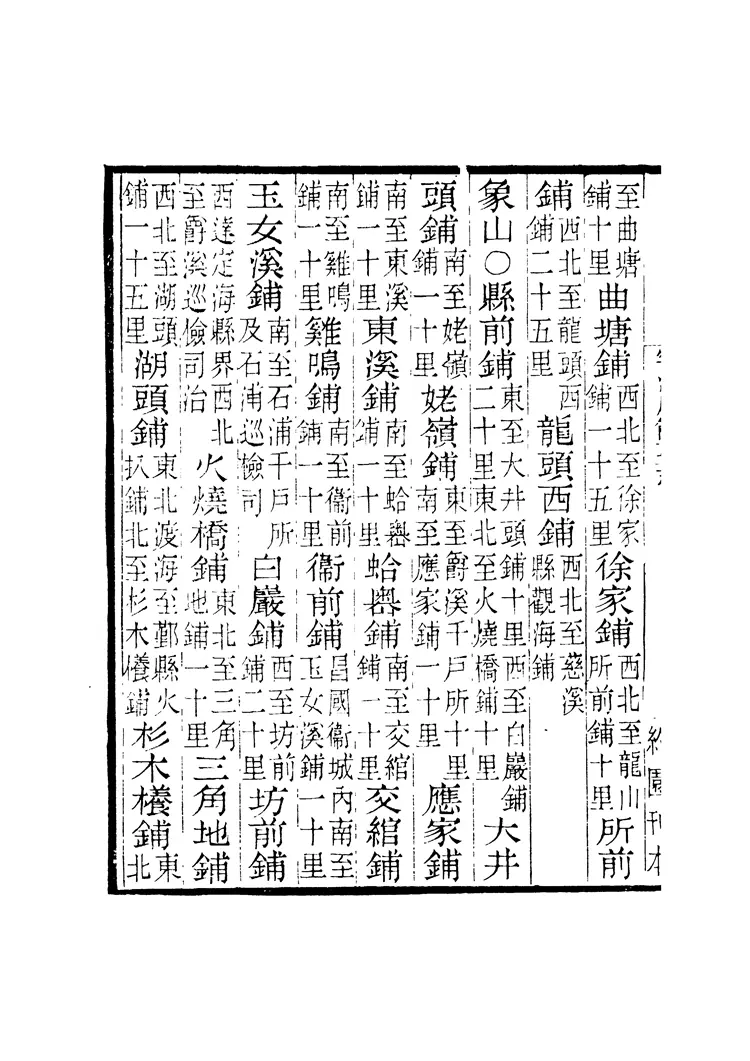 至曲塘鋪十里曲塘鋪西北至徐家鋪一十五里徐家鋪西北至龍山所前鋪十里所前
鋪西北至龍頭西鋪二十五里龍頭西鋪西北至慈溪縣觀海鋪
象山○縣前鋪東至大井頭鋪十里西至白巖鋪二十里東北至火燒橋鋪十里大井
頭鋪南至姥嶺鋪一十里姥嶺鋪東至爵溪千戶所十里南至應家鋪一十里應家鋪
南至東溪鋪一十里東溪鋪南至蛤嶴鋪一十里蛤嶴鋪南至交綰鋪一十里交綰鋪
南至雞鳴鋪一十里雞鳴鋪南至衞前鋪一十里衞前鋪昌國衞城內南至玉女溪鋪一十里
玉女溪鋪南至石浦千戶所及石浦巡檢司白巖鋪西至坊前鋪二十里坊前鋪
西達定海縣界西北至爵溪巡檢司治火燒橋鋪東北至三角地鋪一十里三角地鋪
西北至湖頭鋪一十五里湖頭鋪東北渡海至鄞縣火扒鋪北至杉木檥鋪杉木檥鋪東北
約園刊本